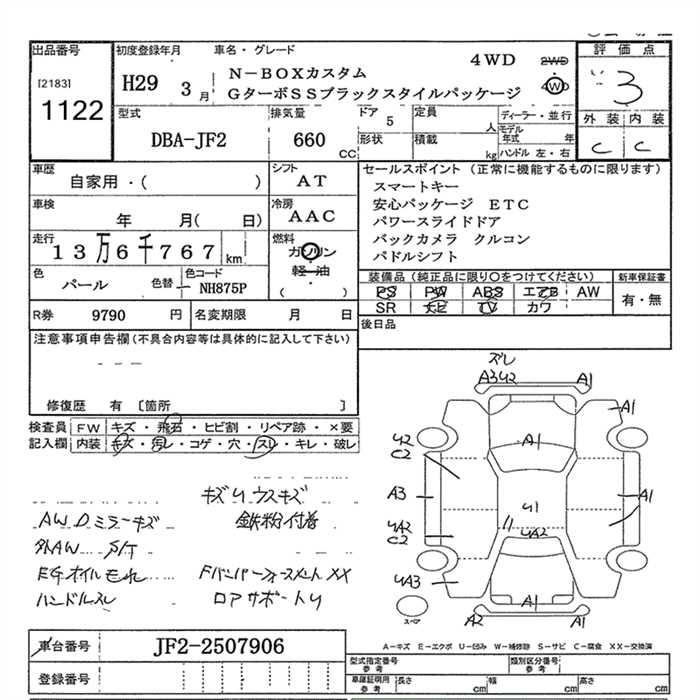 出品番号
[2183]
1122
初度登録年月
車名・グレード
H29 3月
N-BOXカスタム
GターボSSブラックスタイルパッケージ
4WD
2WD
4WD
評価点
3
外装 内装
C C
型式
DBA-JF2
排気量
660
CC
ドア
5
形状
定員
人
積載
kg
ディーラー・並行
モデル
年式 年
ハンドル 左・右
車歴
自家用・( )
シフト
AT
車検
年 月( 日)
冷房
AAC
走行
13万6千767 km
燃料
ガソリン
軽・油
( )
色
パール
色替
色コード
NH875P
R券 9790 円
名変期限 月 日
セールスポイント (正常に機能するものに限ります)
スマートキー
安心パッケージ ETC
パワースライドドア
バックカメラ クルコン
パドルシフト
装備品(純正品に限り○をつけてください)
新車保証書
PS PW ABS エアB AW
有・無
SR ナビ TV カワ
後日品
注意事項申告欄(不具合内容等は具体的に記入して下さい)
修復歴 有 〔箇所 〕
検査員
記入欄
FW キズ・飛石・ヒビ割・リペア跡・×要
内装 キズ・汚レ・コゲ・穴・スレ・キレ・破レ
キズU ウスキズ
AW Dミラーキズ
鉄粉付着
外AW
EGオイルモレ
FバンパーフォースメントXX
ハンドルスレ
ロアサポートU
ズレ
A3 U2
A1
A1
A1
U2
C2
A3
U1
A1
UA2
C2
UA2
UA3
A1
A2
A1
スペア
車台番号
JF2-2507906
登録番号
A-キズ E-エクボ U-凹み W-補修跡 S-サビ C-腐食 XX-交換済
型式指定番号
参考
類別区分番号
参考
車庫証明用
参考
長さ cm
幅 cm
高さ cm